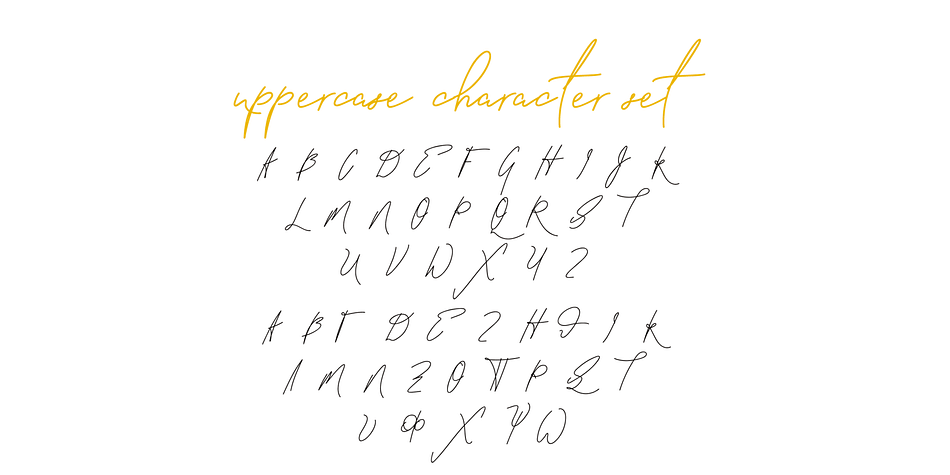 uppercase character set
A B C D E F G H I J K
L M N O P Q R S T
U V W X Y Z
Α Β Γ Δ Ε Ζ Η Θ Ι Κ
Λ Μ Ν Ξ Ο Π Ρ Σ Τ
Υ Φ Χ Ψ Ω